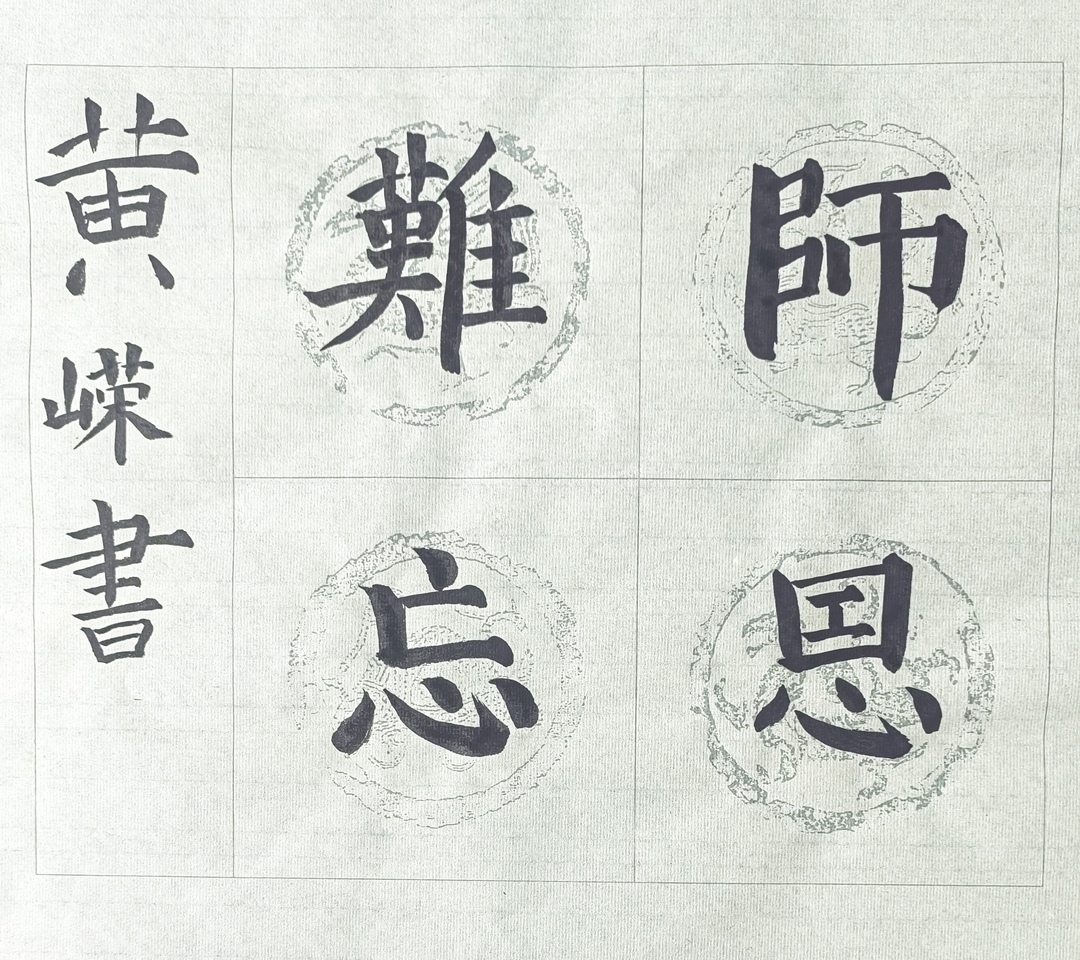 師恩
難忘
黄嵘書